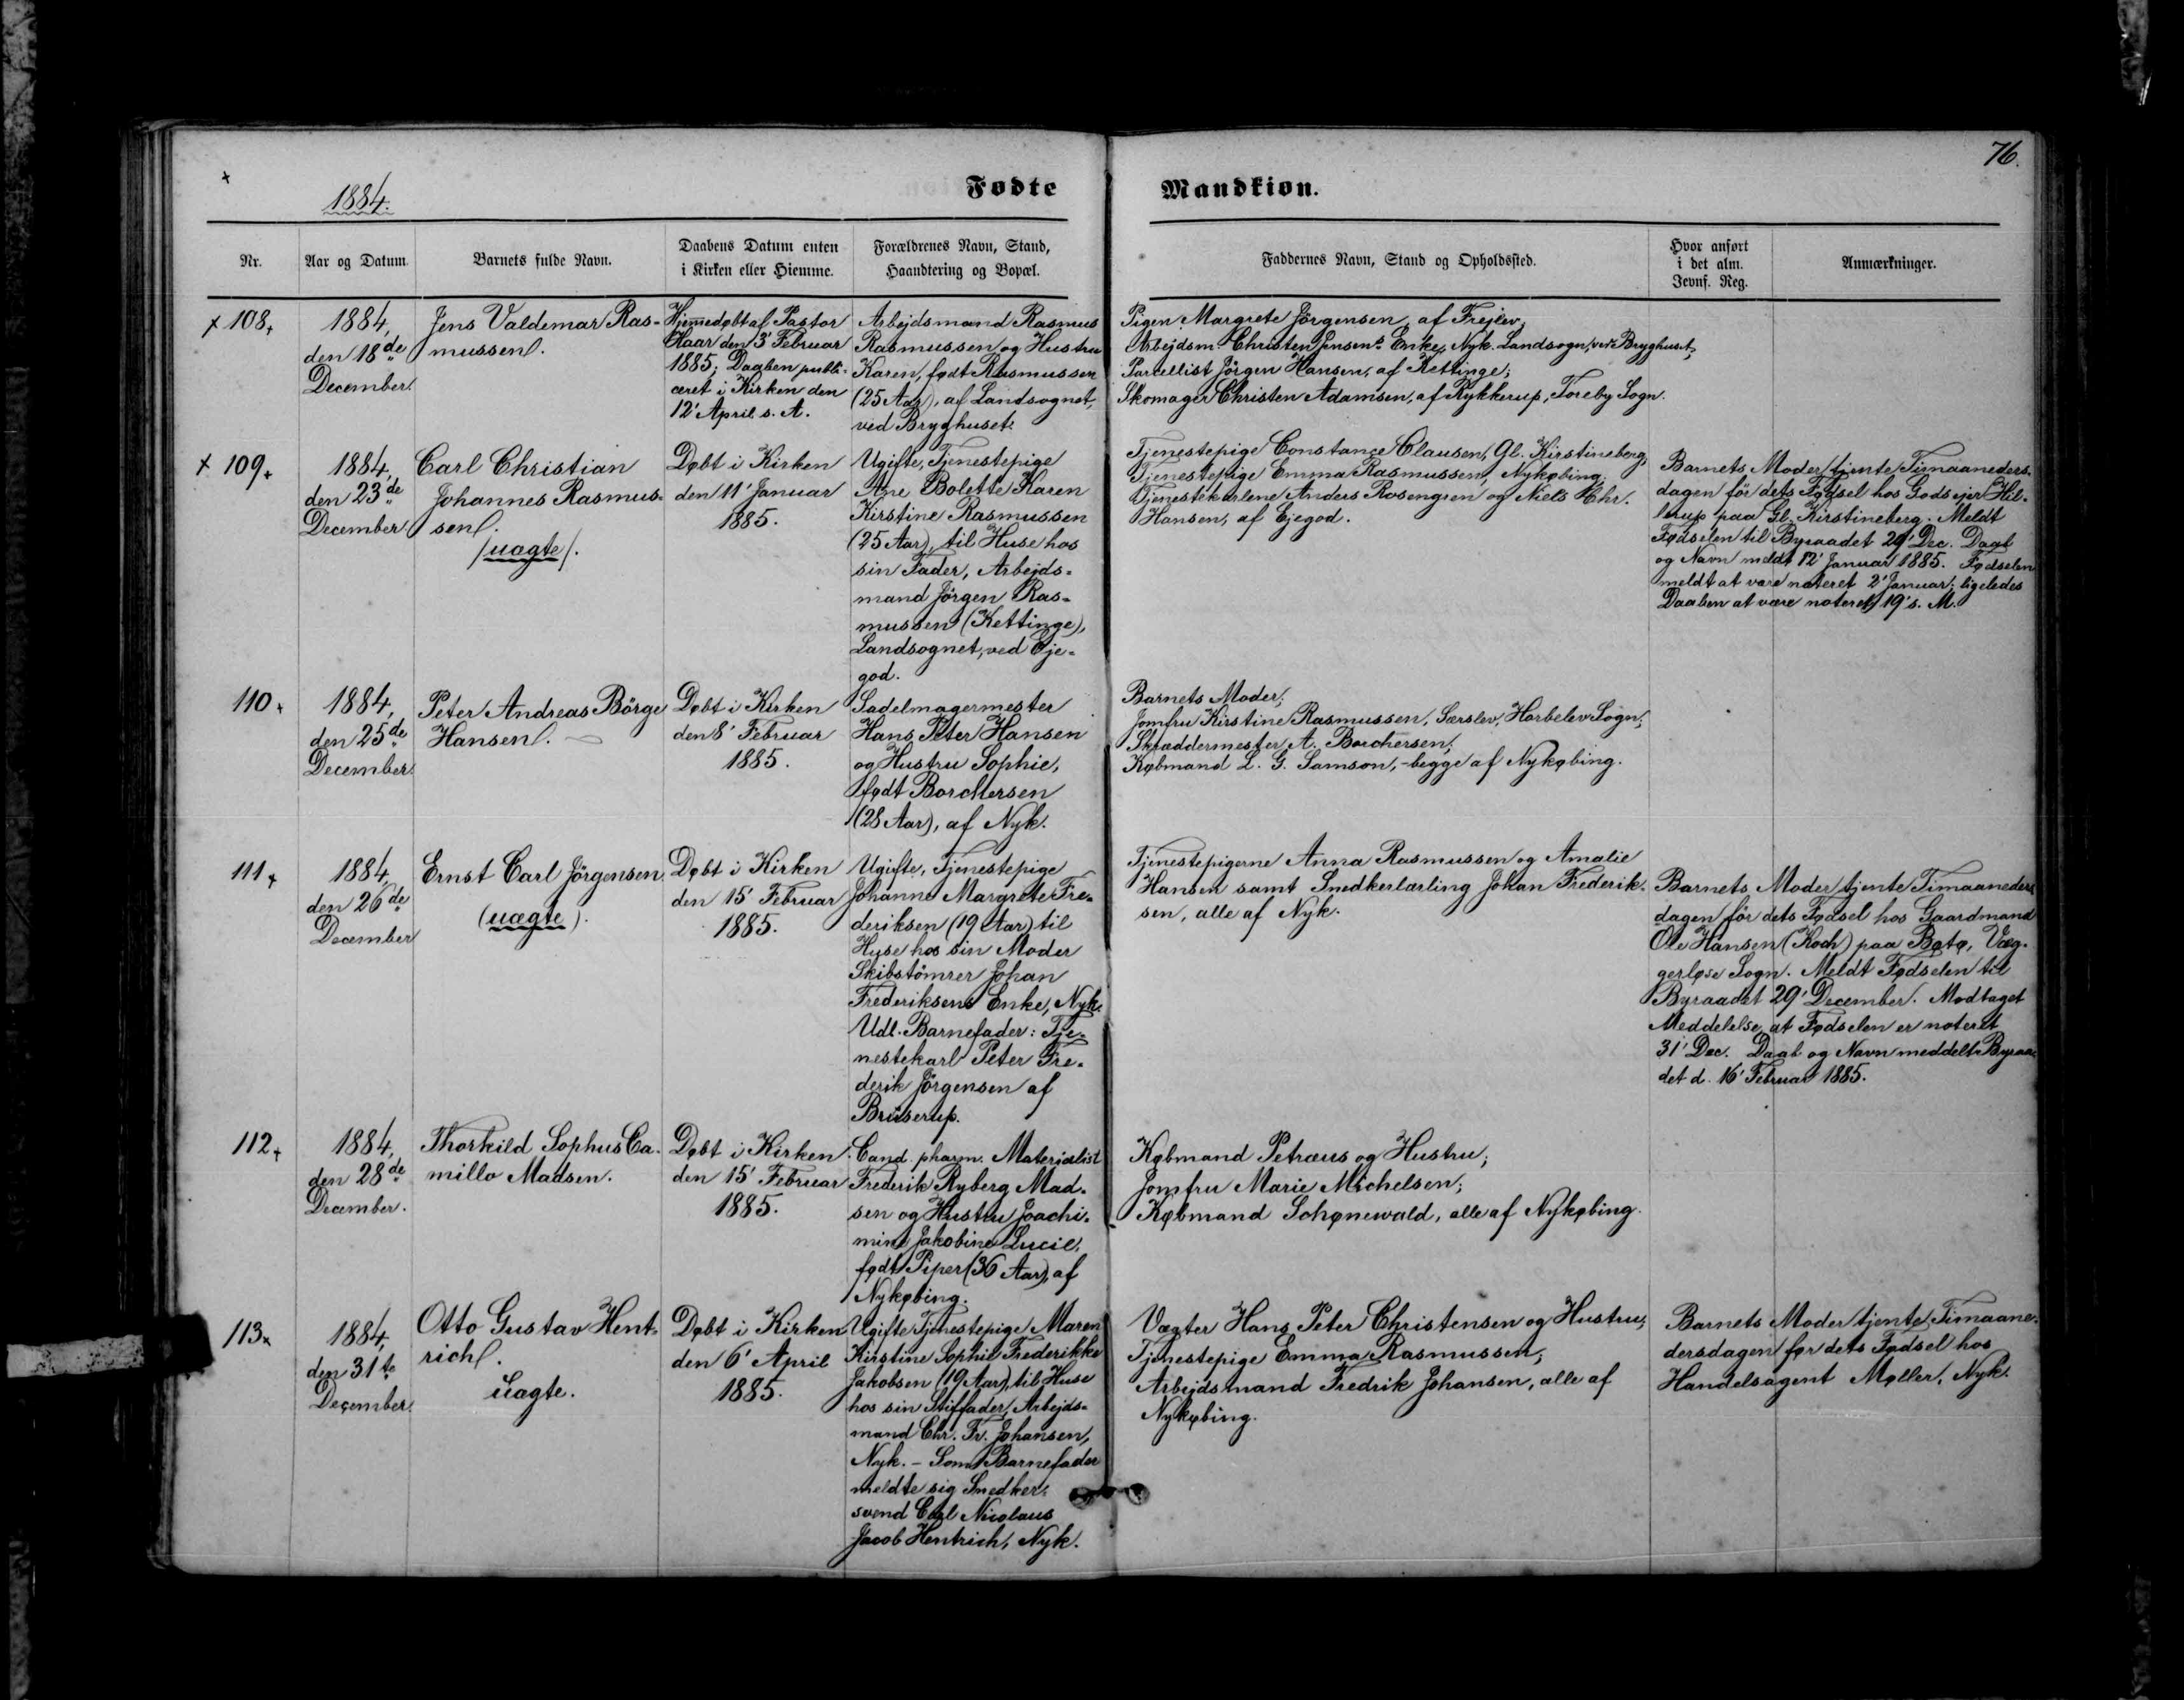 76.
1884.
Fødte Mandkiøn.
Nr.
Aar og Datum.
Barnets fulde Navn.
Daabens Datum enten
i Kirken eller Hiemme.
Forældrenes Navn, Stand,
Haandtering og Bopæl.
Faddernes Navn, Stand og Opholdssted.
Hvor anført
i det alm.
Jevnf. Reg.
Anmærkninger.
108.
1884,
den 18de
December.
Jens Valdemar Ras-
mussen.
Hjemmedøbt af Pastor
Haar den 3' Februar
1885; Daaben publi-
ceret i Kirken den
12' April s. A.
Arbejdsmand Rasmus
Rasmussen og Hustru
Karen, født Rasmussen
(25 Aar), af Landsognet,
ved Bryghuset.
Pigen Margrete Jörgensen, af Frejlev;
Arbejdsm. Christen Jensens Enke, Nyk. Landsogn, ved Bryghuset;
Parcellist Jörgen Hansen, af Kettinge;
Skomager Christen Adamsen, af Rykkerup, Toreby Sogn.
109.
1884,
den 23de
December
Carl Christian
Johannes Rasmus-
sen.
/uægte/.
Døbt i Kirken
den 11' Januar
1885.
Ugifte, Tjenestepige
Ane Bolette Karen
Kirstine Rasmussen
(25 Aar), til Huse hos
sin Fader, Arbejds-
mand Jörgen Ras-
mussen (Kettinge),
Landsognet, ved Eje-
god.
Tjenestepige Constance Clausen, Gl. Kirstineberg;
Tjenestepige Emma Rasmussen, Nykøbing;
Tjenestekarlene Anders Rosengren og Niels Chr.
Hansen, af Ejegod.
Barnets Moder tjente Timaaneders-
dagen för dets Fødsel hos Godsejer Hil-
lerup paa Gl. Kirstineberg. Meldt
Fødselen til Byraadet 29' Dec. Daab
og Navn meldt 12' Januar 1885. Fødselen
meldt at være noteret 2' Januar; ligeledes
Daaben at være noteret 19' s. M.
110.
1884,
den 25de
December.
Peter Andreas Börge
Hansen.
Døbt i Kirken
den 8' Februar
1885.
Sadelmagermester
Hans Peter Hansen
og Hustru Sophie,
født Borchersen
(28 Aar), af Nyk.
Barnets Moder;
Jomfru Kirstine Rasmussen, Særslev, Horbelev Sogn;
Skræddermester A. Borchersen;
Købmand L. G. Samson, - begge af Nykøbing.
111.
1884,
den 26de
December
Ernst Carl Jörgensen.
(uægte).
Døbt i Kirken
den 15' Februar
1885.
Ugifte, Tjenestepige
Johanne Margrete Fre-
deriksen (19 Aar) til
Huse hos sin Moder
Skibstömrer Johan
Frederiksens Enke, Nyk.
Udl. Barnefader: Tje-
nestekarl Peter Fre-
derik Jörgensen af
Bruserup.
Tjenestepigerne Anna Rasmussen og Amalie
Hansen samt Snedkerlærling Johan Frederik-
sen, alle af Nyk.
Barnets Moder tjente Timaaneders-
dagen för dets Fødsel hos Gaardmand
Ole Hansen (Koch) paa Bøtø, Væg-
gerløse Sogn. Meldt Fødselen til
Byraadet 29' December. Modtaget
Meddelelse at Fødselen er noteret
31' Dec. Daab og Navn meddelt Byraa-
det d. 16' Februar 1885.
112.
1884,
den 28de
December.
Thorkild Sophus Ca-
millo Madsen.
Døbt i Kirken
den 15' Februar
1885.
Cand. pharm. Materialist
Frederik Ryberg Mad-
sen og Hustru Joachi-
mine Jakobine Lucie,
født Piper (36 Aar), af
Nykøbing.
Købmand Petræus og Hustru;
Jomfru Marie Michelsen;
Købmand Schønewald, alle af Nykøbing.
113.
1884,
den 31te
December.
Otto Gustav Hent-
rich.
Uægte.
Døbt i Kirken
den 6' April
1885.
Ugifte Tjenestepige Maren
Kirstine Sophie Frederikke
Jakobsen (19 Aar), til Huse
hos sin Stiffader, Arbejds-
mand Chr. Fr. Johansen,
Nyk. - Som Barnefader
meldte sig Snedker-
svend Carl Nicolaus
Jacob Hentrich, Nyk.
Vægter Hans Peter Christensen og Hustru;
Tjenestepige Emma Rasmussen;
Arbejdsmand Fredrik Johansen, alle af
Nykøbing.
Barnets Moder tjente Timaane-
dersdagen før dets Fødsel hos
Handelsagent Møller, Nyk.